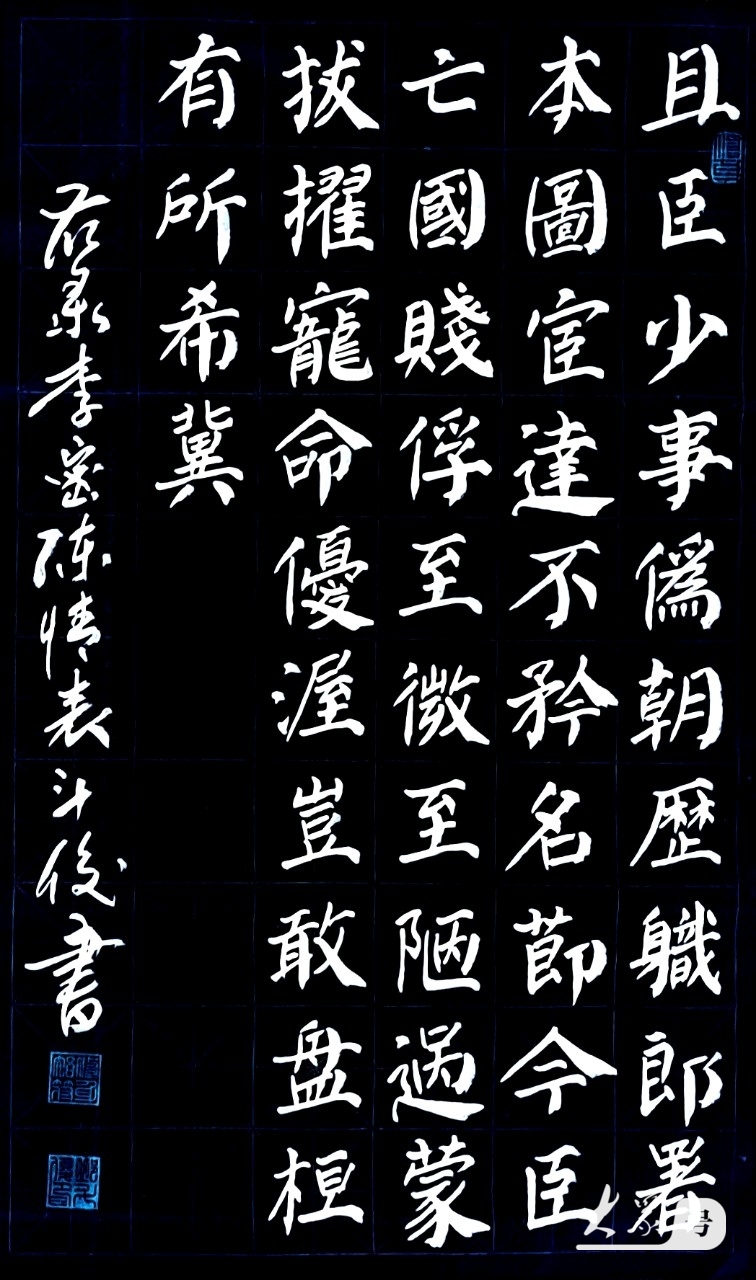 且臣少事僞朝歷職郎署
本圖宦達不矜名節今臣
亡國賤俘至微至陋過蒙
拔擢寵命優渥豈敢盘桓
有所希冀
右录李密陈情表斗俊書